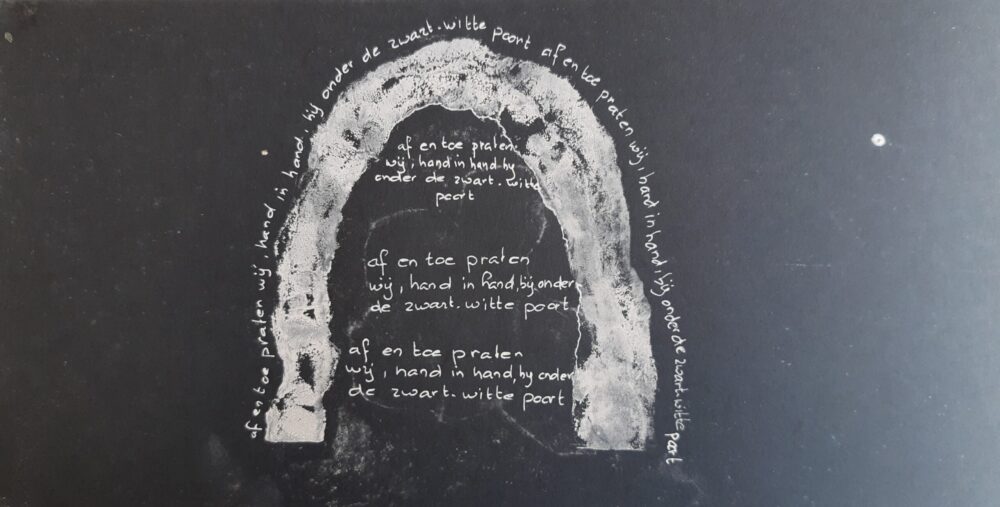 af en toe praten wij, hand in hand, bij onder de zwart-witte poort af en toe praten wij, hand in hand, bij onder de zwart-witte poort
af en toe praten
wij, hand in hand by
onder de zwart-witte
poort
af en toe praten
wij, hand in hand, bij onder
de zwart-witte poort
af en toe praten
wij, hand in hand, by onder
de zwart-witte poort